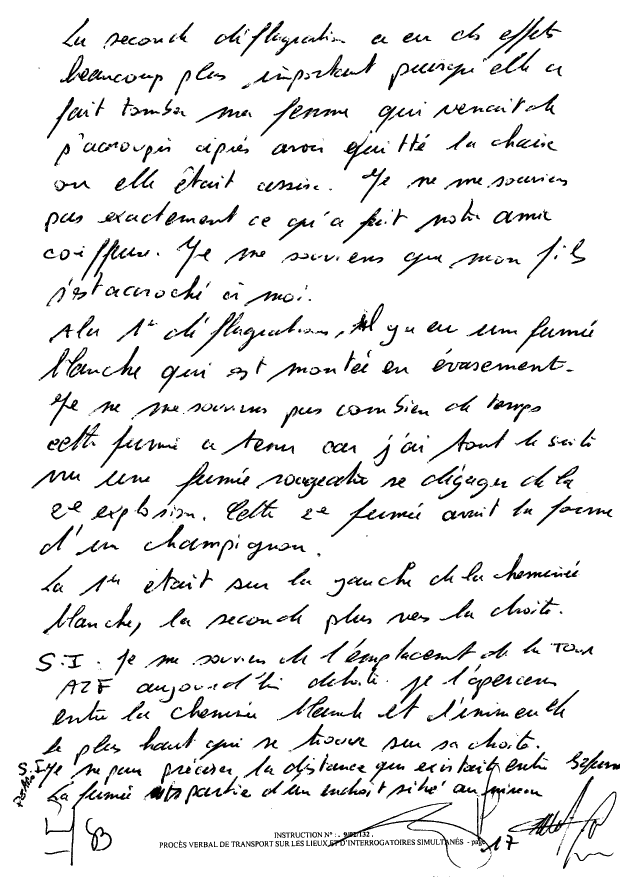 La seconde déflagration a eu des effets
beaucoup plus important puisqu'elle a
fait tomber ma femme qui venait de
s'accroupir après avoir quitté la chaise
ou elle était assise. Je ne me souviens
pas exactement ce qu'a fait notre amie
coiffeuse. Je me souviens que mon fils
s'est accroché à moi.
A la 1ère déflagration, il y a eu une fumée
blanche qui est montée en évasement.
Je ne me souviens pas combien de temps
cette fumée a tenu car j'ai tout de suite
vu une fumée rougeatre se dégager de la
2e explosion. Cette 2e fumée avait la forme
d'un champignon.
La 1ère était sur la gauche de la cheminée
blanche, la seconde plus vers la droite.
S.I. Je me souviens de l'emplacement de la Tour
AZF aujourd'hui detruite. je l'apercevais
entre la cheminée blanche et l'immeuble
le plus haut qui se trouve sur sa droite.
S.I. Je ne peux préciser la distance qui existait entre
La fumée est partie d'un endroit situé au niveau
INSTRUCTION N° : . 9/01/132 .
PROCÈS VERBAL DE TRANSPORT SUR LES LIEUX ET D'INTERROGATOIRES SIMULTANÉS - page 17